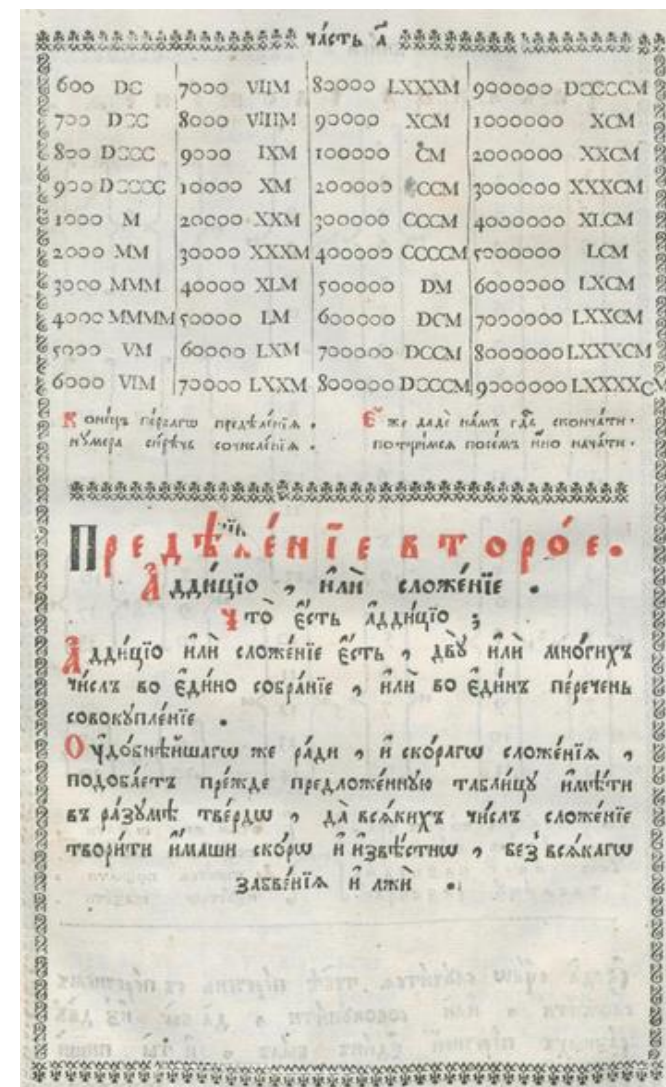 ча́сть а҃
600 DC 7000 VIIM 80000 LXXXM 900000 DCCCCM
700 DCC 8000 VIIIM 90000 XCM 1000000 XCM
800 DCCC 9000 IXM 100000 CM 2000000 XXCM
900 DCCCC 10000 XM 200000 CCM 3000000 XXXCM
1000 M 20000 XXM 300000 CCCM 4000000 XLCM
2000 MM 30000 XXXM 400000 CCCCM 5000000 LCM
3000 MMM 40000 XLM 500000 DM 6000000 LXCM
4000 MMMM 50000 LM 600000 DCM 7000000 LXXCM
5000 VM 60000 LXM 700000 DCCM 8000000 LXXXCM
6000 VIM 70000 LXXM 800000 DCCCM 9000000 LXXXXCM
Коне́цъ пе́рвагѡ предѣле́нїѧ .
нꙋ́мера си́рѣчь сочисле́нїѧ .
Е҆́же дадѐ на́мъ гдⷭ҇ь сконча́ти .
потщи́мсѧ посе́мъ и҆́но нача́ти .
Предѣле́нїе второ́е .
А҆дди́цїо , и҆лѝ сложе́нїе .
Что̀ є҆́сть а҆дди́цїо ;
А҆дди́цїо и҆лѝ сложе́нїе є҆́сть , двꙋ̀ и҆лѝ мно́гихъ
чи́слъ во є҆ди́но собра́нїе , и҆лѝ во є҆ди́нъ пе́речень
совокꙋпле́нїе .
Оу҆до́бнѣйшагѡ же ра́ди , и҆ ско́рагѡ сложе́нїѧ ,
подоба́етъ пре́жде предложе́ннꙋю табли́цꙋ и҆мѣ́ти
въ ра́зꙋмѣ тве́рдѡ , да̀ всѧ́кихъ чи́слъ сложе́нїе
твори́ти и҆́маши ско́рѡ и҆ и҆звѣ́стнѡ , без̾ всѧ́кагѡ
забве́нїѧ и҆ лжѝ .